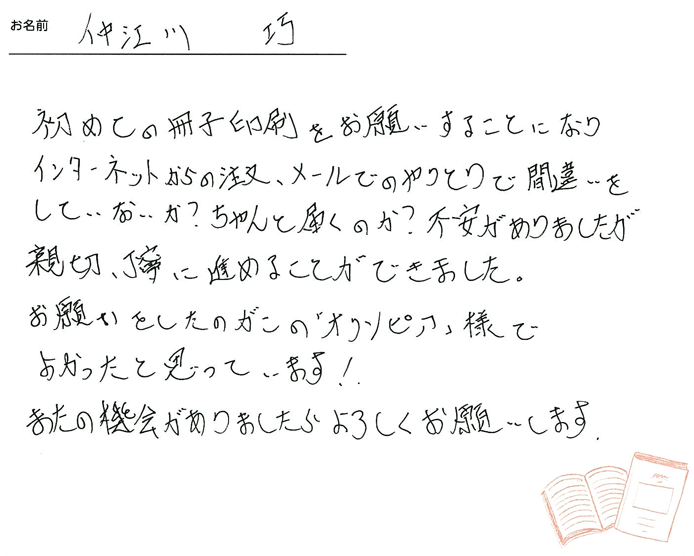 お名前 仲江川 巧
初めての冊子印刷をお願いすることになり
インターネットからの注文、メールでのやりとりで間違いを
していないか？ちゃんと届くのか？不安がありましたが
親切、丁寧に進めることができました。
お願いをしたのがこの「オリンピア」様で
よかったと思っています！
またの機会がありましたらよろしくお願いします。